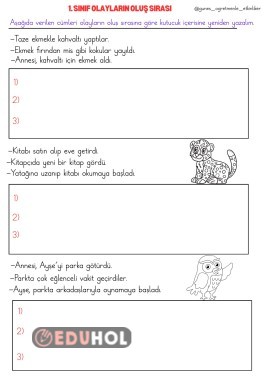 1. SINIF OLAYLARIN OLUŞ SIRASI
@gunes_ogretmenle_etkinlikler
Aşağıda verilen cümleri olayların oluş sırasına göre kutucuk içerisine yeniden yazalım.
-Taze ekmekle kahvaltı yaptılar.
-Ekmek fırından mis gibi kokular yayıldı.
-Annesi, kahvaltı için ekmek aldı.
1)
2)
3)
-Kitabı satın alıp eve getirdi
-Kitapçıda yeni bir kitap gördü.
-Yatağına uzanıp kitabı okumaya başladı.
1)
2)
3)
-Annesi, Ayşe'yi parka götürdü.
-Parkta çok eğlenceli vakit geçirdiler.
-Ayşe, parkta arkadaşlarıyla oynamaya başladı.
1)
2)
3)
EDUHOL